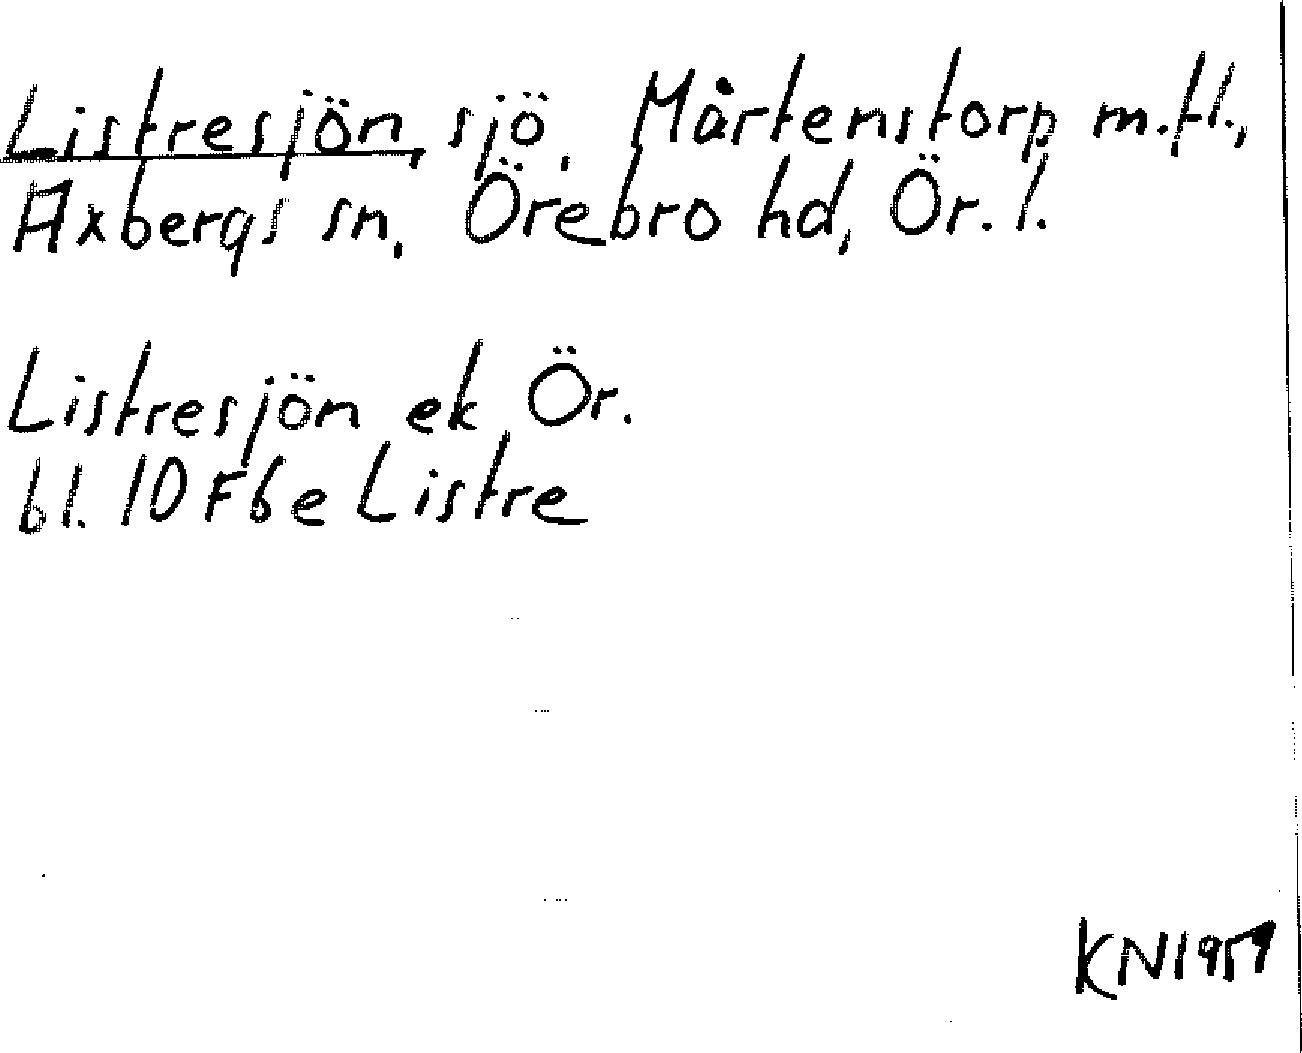 Listresjön, sjö, Mårtenstorp m.fl.,
Axbergs sn, Örebro hd, Ör. l.
Listresjön ek Ör.
bl. 10 F6e Listre
KN 1957